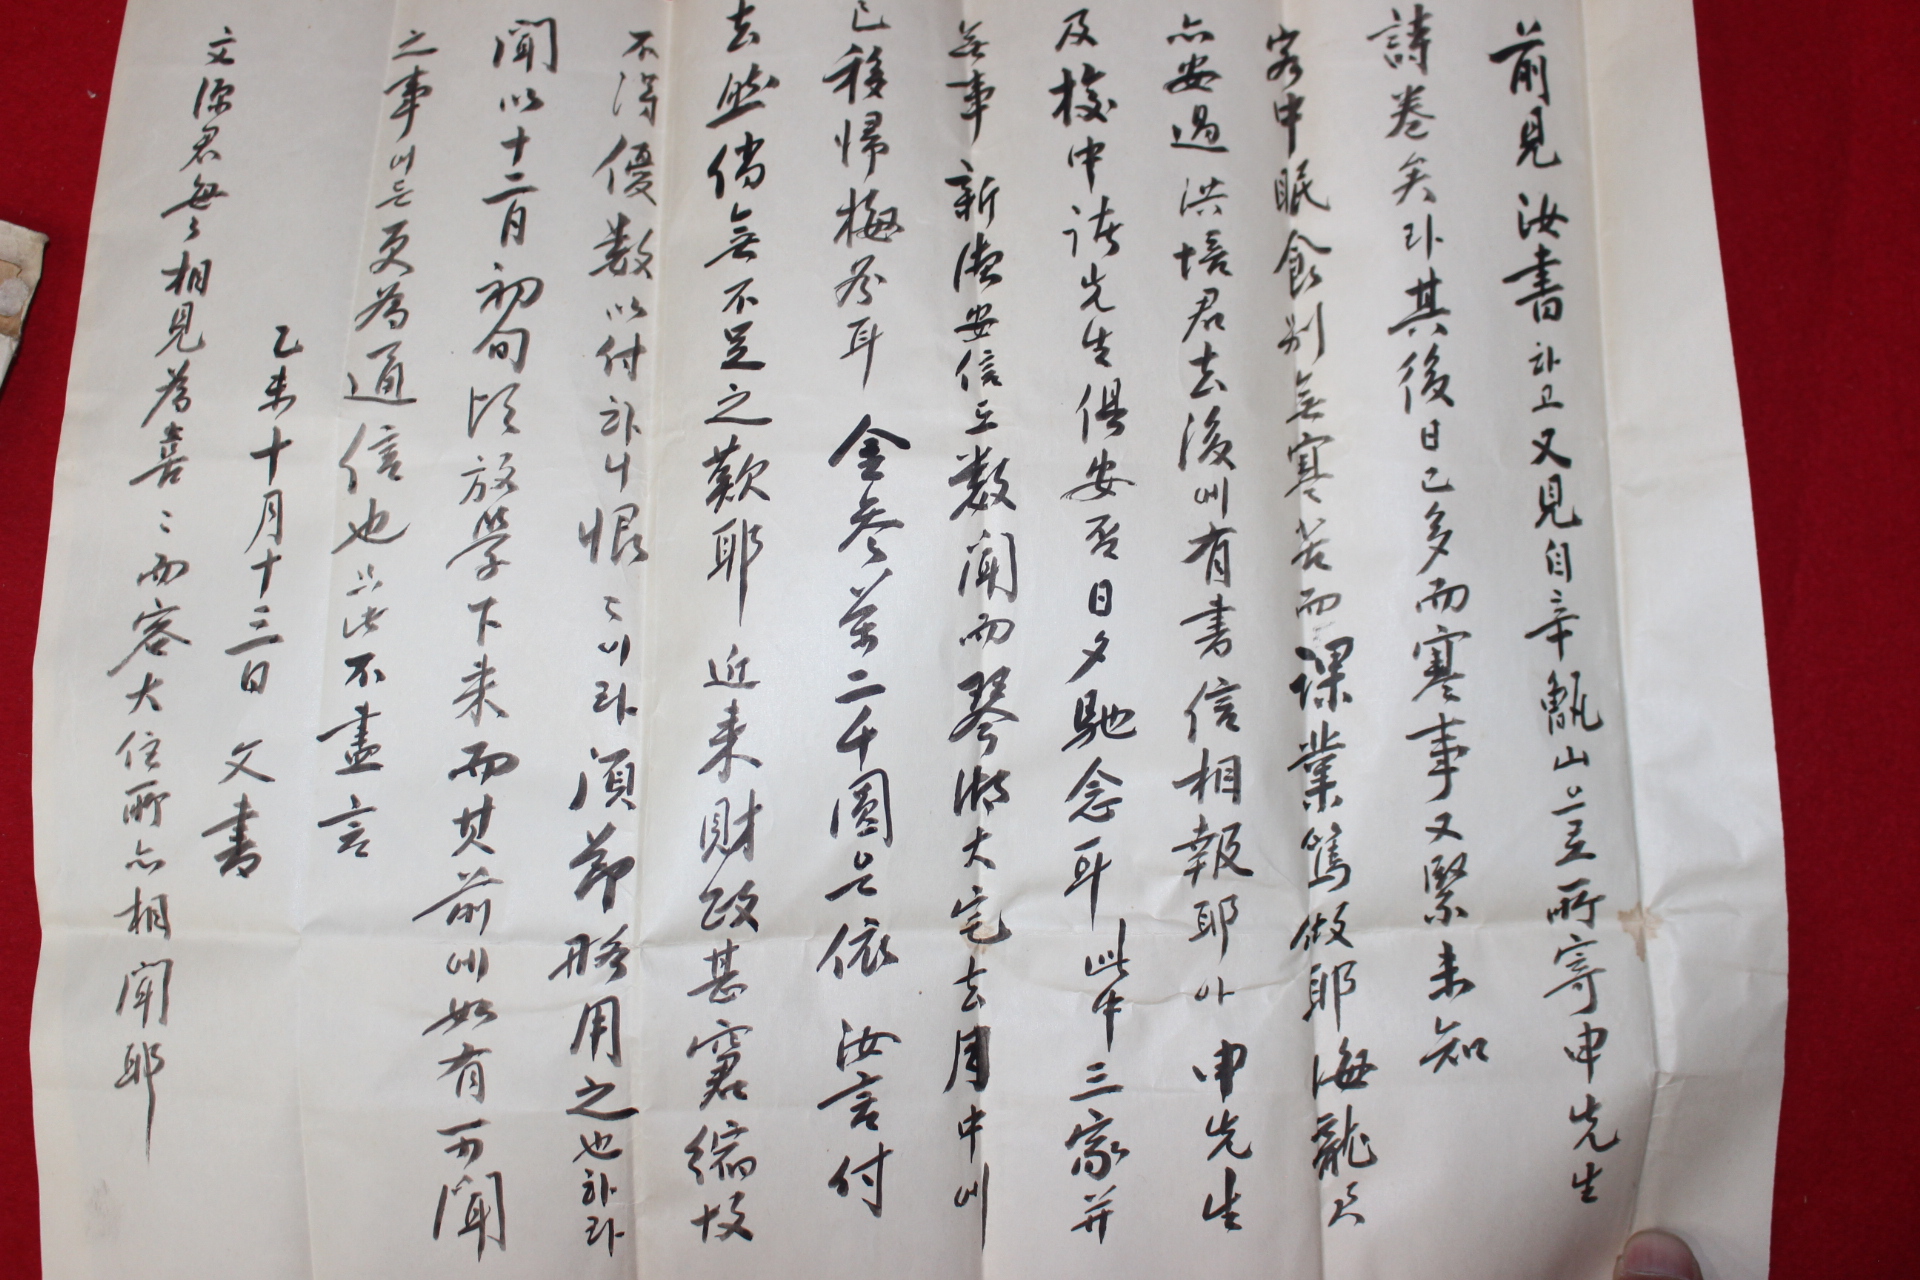 前見 汝書하고又見自辛甑山으로所寄申先生
詩卷矣라其後日已多而寒事又緊未知
客中眠食別無寒苦而課業篤做耶海龍君
亦安過 洪培君去後에有書信相報耶아 申先生
及校中諸先生俱安否日夕馳念耳 此中三家并
無事 新德安信도數聞而琴湖大宅去月中에
已移歸梅谷耳 金參萬二千圓은依 汝言付
去 然倘無不足之歎耶 近来財政甚窘縮故
不得優數以付하니恨〻이라須節略用之也하라
聞以十二月初旬頃放學下来而其前에如有可聞
之事어든更為通信也只此不盡言
乙未十月十三日 文書
文源君每〻相見為喜〻而容大住所亦相聞耶